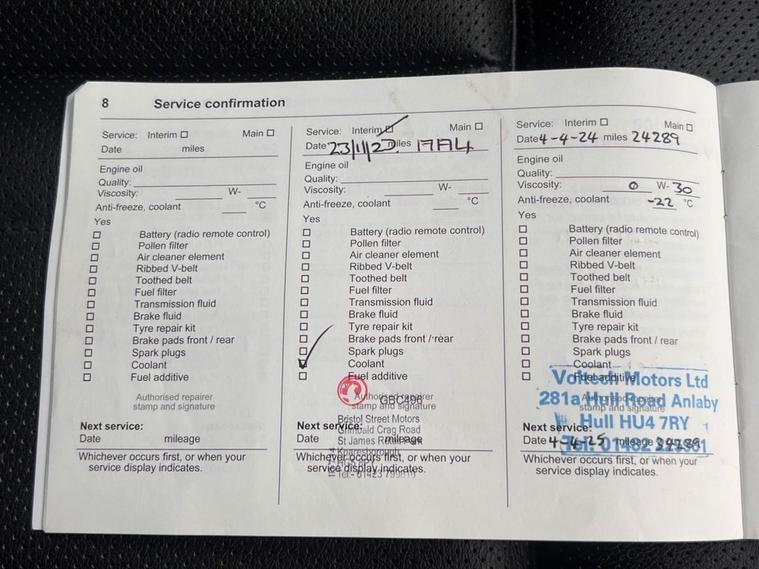 8 Service confirmation
Service: Interim Main
Date miles
Engine oil
Quality:
Viscosity: W-
Anti-freeze, coolant °C
Yes
Battery (radio remote control)
Pollen filter
Air cleaner element
Ribbed V-belt
Toothed belt
Fuel filter
Transmission fluid
Brake fluid
Tyre repair kit
Brake pads front / rear
Spark plugs
Coolant
Fuel additive
Authorised repairer
stamp and signature
Next service:
Date mileage
Whichever occurs first, or when your
service display indicates.
Service: Interim Main
Date miles
Engine oil
Quality:
Viscosity: W-
Anti-freeze, coolant °C
Yes
Battery (radio remote control)
Pollen filter
Air cleaner element
Ribbed V-belt
Toothed belt
Fuel filter
Transmission fluid
Brake fluid
Tyre repair kit
Brake pads front / rear
Spark plugs
Coolant
Fuel additive
Authorised repairer
GBC496
stamp and signature
Bristol Street Motors
Next service:
Grimbald Crag Road
Date mileage
St James Retail Park
Knaresborough
Whichever occurs first, or when your
service display indicates.
Service: Interim Main
Date 4-4-24 miles 24289
Engine oil
Quality:
Viscosity: 0 W-30
Anti-freeze, coolant -22 °C
Yes
Battery (radio remote control)
Pollen filter
Air cleaner element
Ribbed V-belt
Toothed belt
Fuel filter
Transmission fluid
Brake fluid
Tyre repair kit
Brake pads front / rear
Spark plugs
Coolant
Fuel additive
Motors Ltd
Authorised repairer
281a Hull Road Anlaby
stamp and signature
Hull HU4 7RY
Next service:
Date 4-4-25 mileage
Tel: 01482
Whichever occurs first, or when your
service display indicates.